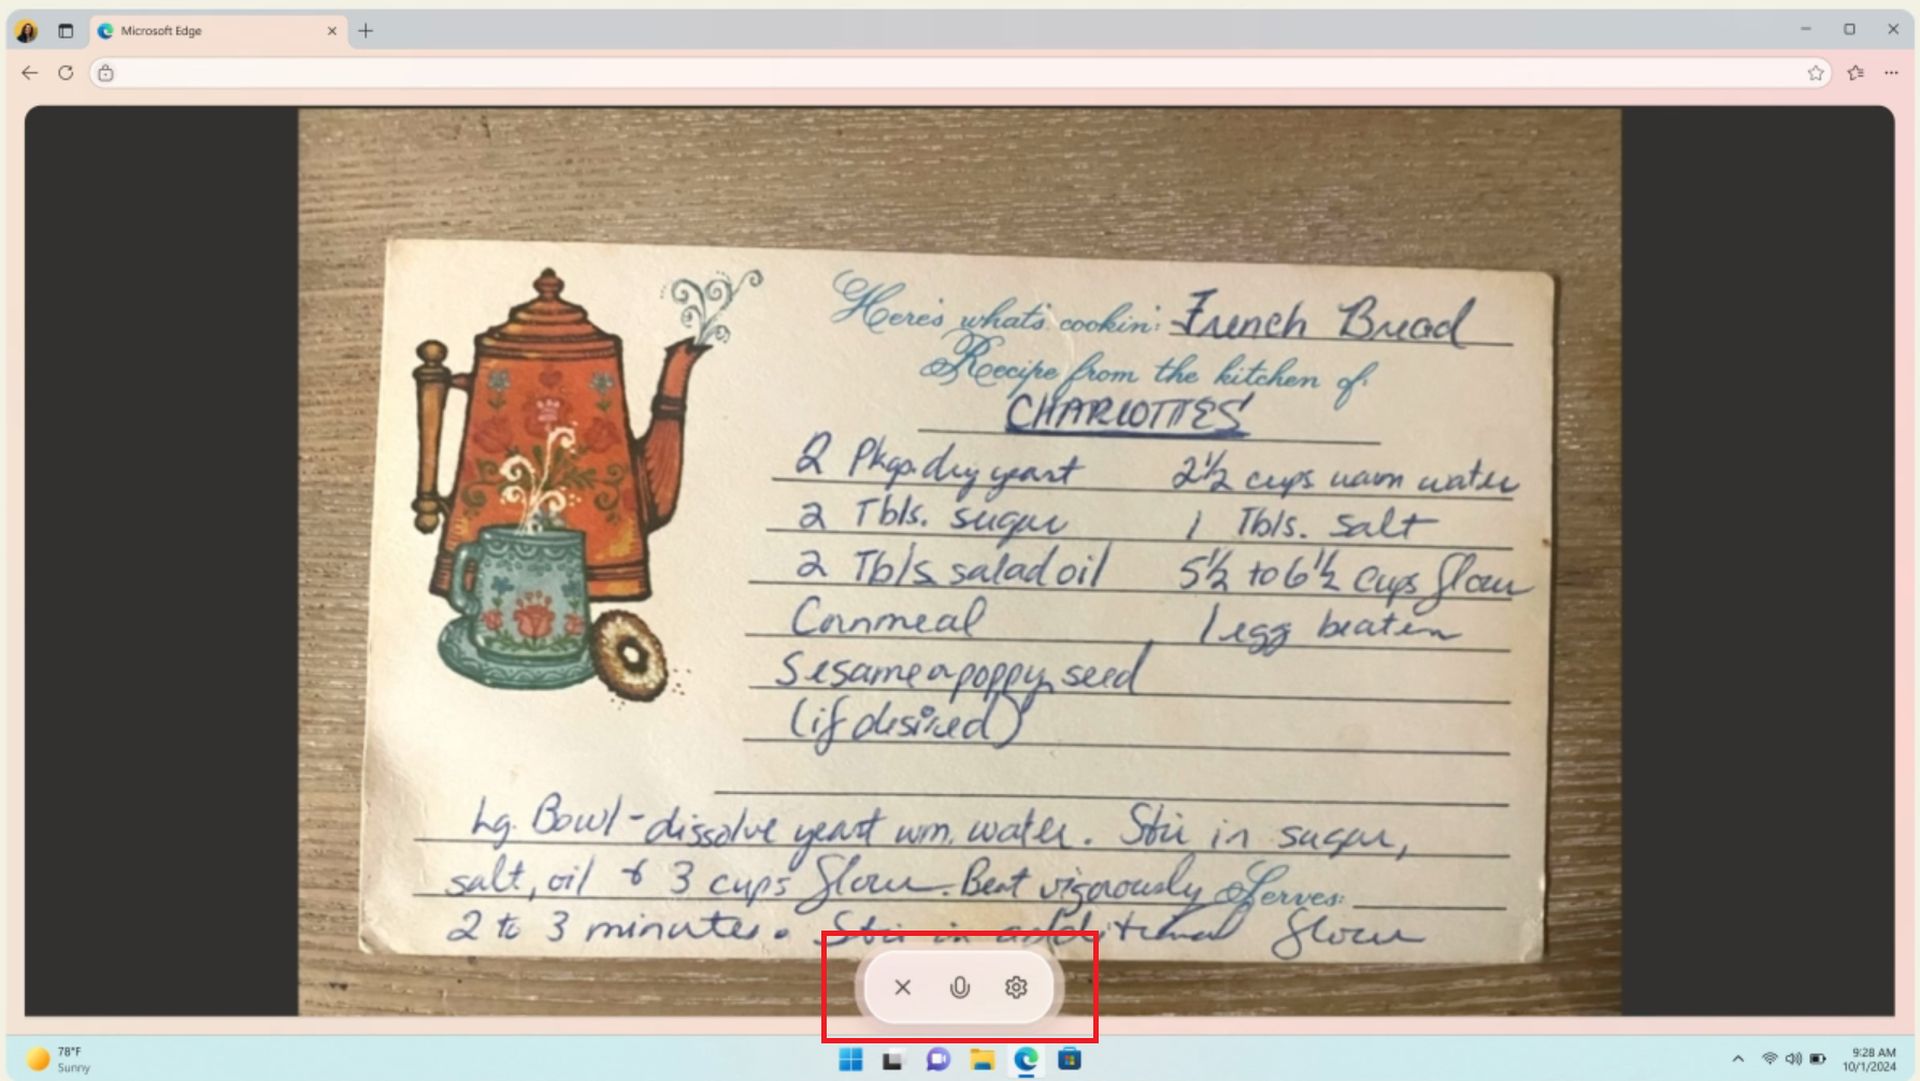 Microsoft Edge
Here's what's cookin': French Bread
Recipe from the kitchen of:
CHARLOTTES'
2 Pkgs. dry yeast 2½ cups warm water
2 Tbls. sugar 1 Tbls. salt
2 Tbls salad oil 5½ to 6½ cups flour
Cornmeal 1 egg beaten
Sesame or poppy seed
(if desired)
Lg. Bowl - dissolve yeast wm. water. Stir in sugar,
salt, oil & 3 cups flour. Beat vigorously Serves:
2 to 3 minutes. Stir in additional flour
78°F
Sunny
9:28 AM
10/1/2024